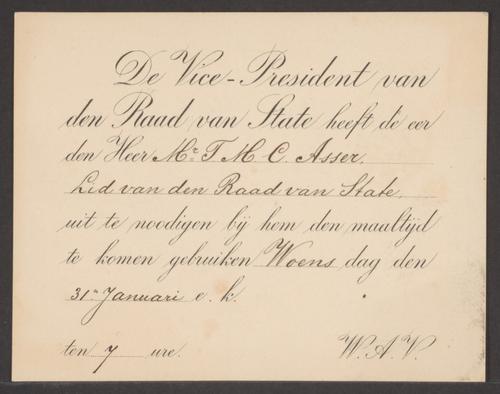 De Vice-President van
den Raad van State heeft de eer
den Heer Mr. T. M. C. Asser,
Lid van den Raad van State,
uit te noodigen bij hem den maaltijd
te komen gebruiken Woensdag den
31n Januari e. k.
ten 7 ure. W. A. V.